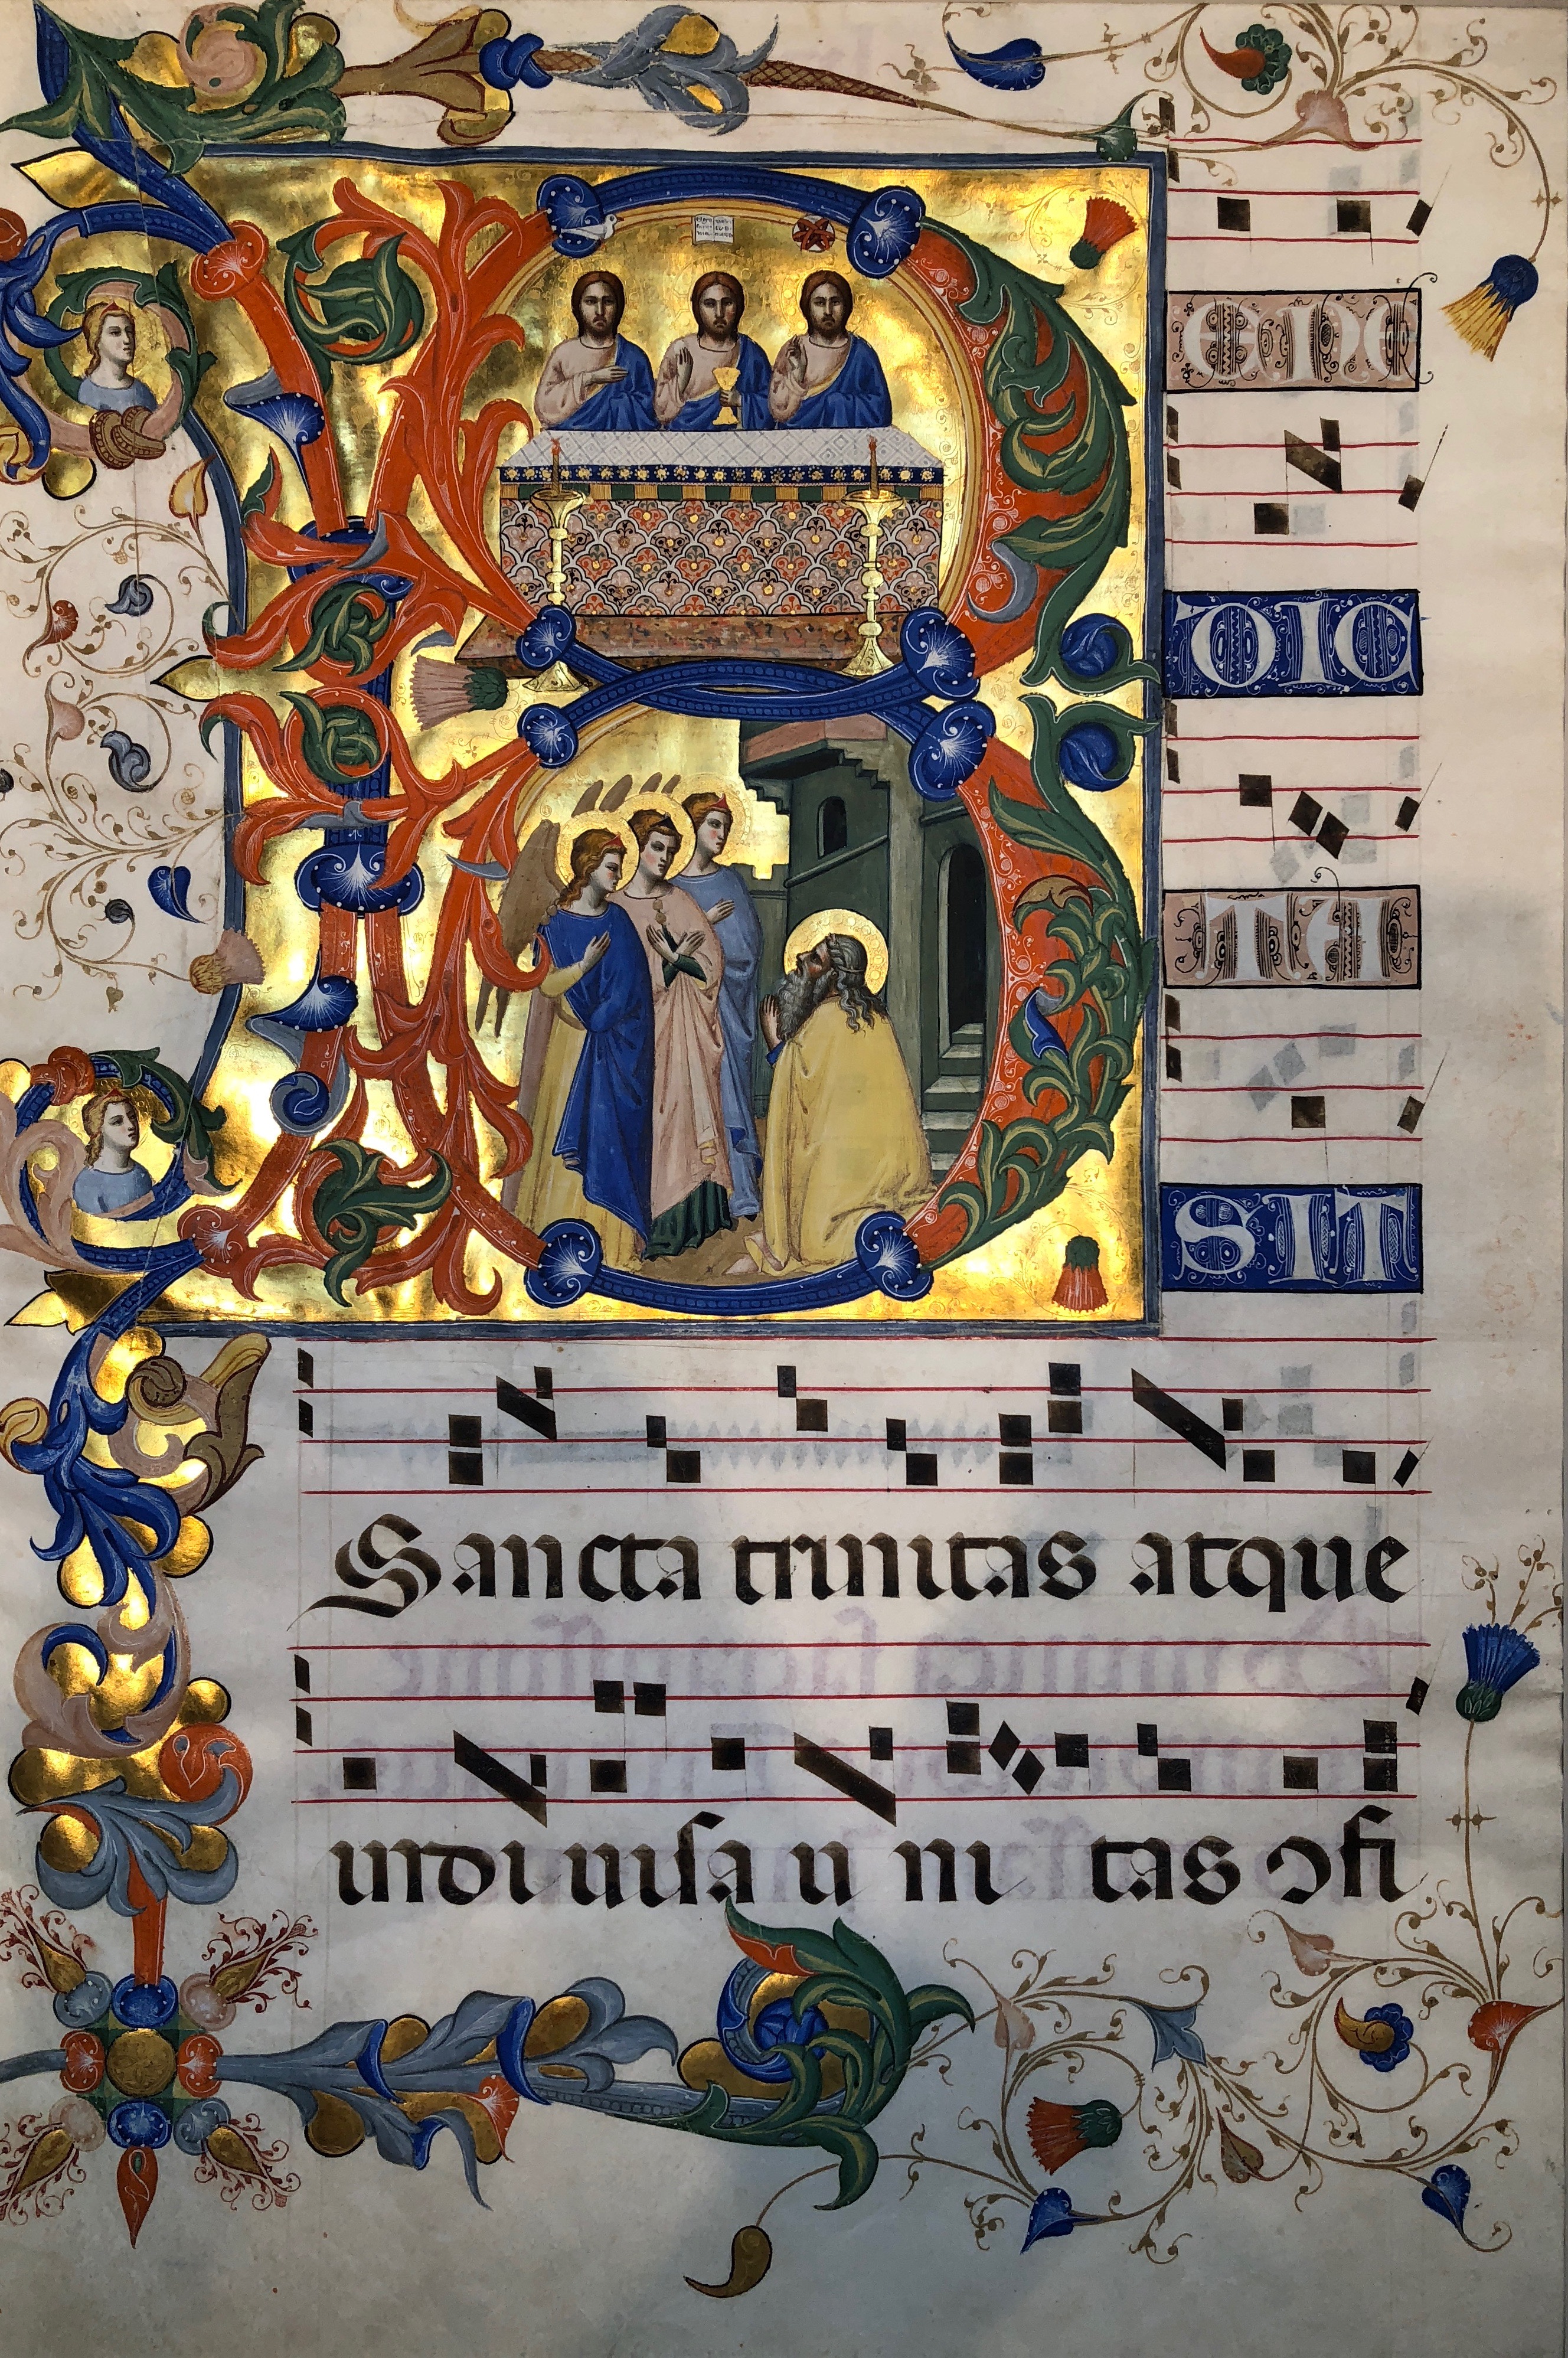 BENE
DIC
TA
SIT
Sancta trinitas atque
indi uisa u ni tas ɔfi